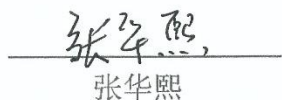 张华熙
张华熙